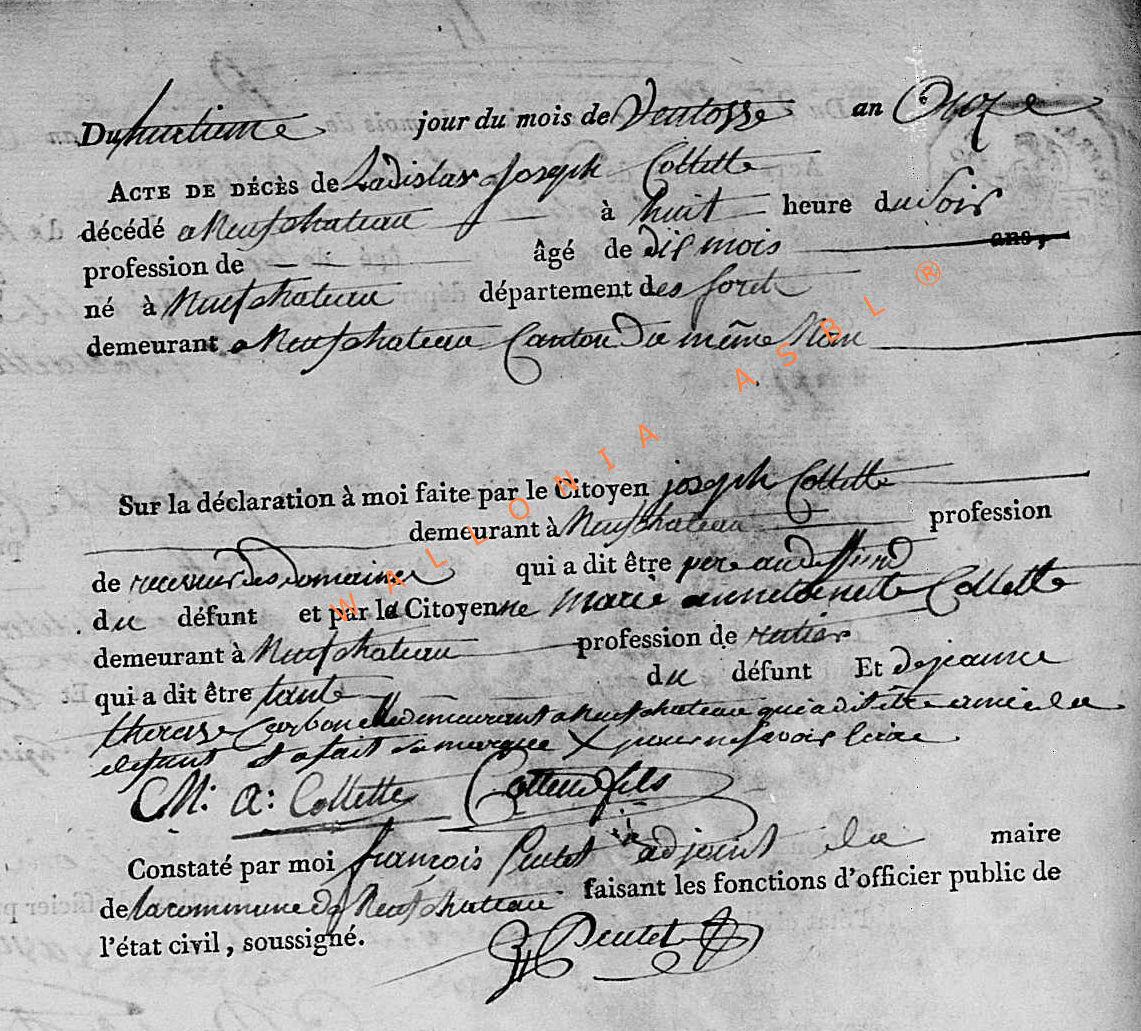 Du huitieme jour du mois de Ventosse an Onze
ACTE DE DÉCÈS de Ladislas Joseph Collette
décédé a Neufchateau à huit heure du Soir
profession de âgé de dis mois ans,
né à Neufchateau département des forets
demeurant a Neufchateau Canton du même Nom
Sur la déclaration à moi faite par le Citoyen joseph Collette
demeurant à Neufchateau profession
de receveur des Domaines qui a dit être pere au deffund
du défunt et par la Citoyenne Marie annetoinette Collette
demeurant à Neufchateau profession de
qui a dit être tante du défunt Et
therese demeurant a Neufchateau qui a dit être amie du
defunt et a fait sa marque X pour ne savoir Ecrire
M: a: Collette Collette fils
Constaté par moi françois Peutet adjoint de la maire
de la commune de Neufchateau faisant les fonctions d'officier public de
l'état civil, soussigné. Peutet
WALLONIA ASBL ®